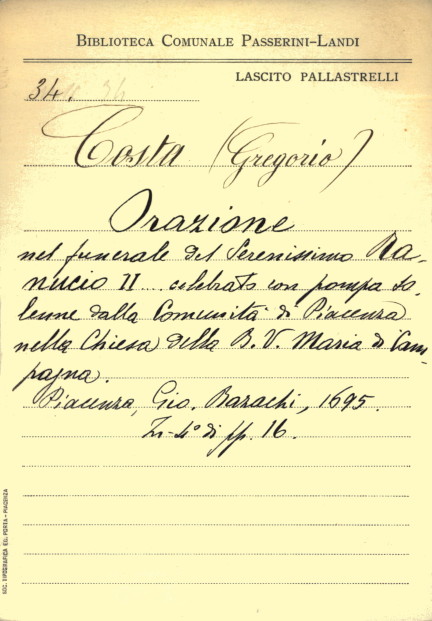 BIBLIOTECA COMUNALE PASSERINI-LANDI
LASCITO PALLASTRELLI
34.
Costa (Gregorio)
Orazione
nel funerale del Serenissimo Ra-
nucio II ... celebrato con pompa so-
lenne dalla Comunità di Piacenza
nella Chiesa della B. V. Maria di Cam-
pagna.
Piacenza, Gio. Bazachi, 1695.
In-4° di pp. 16.
SOC. TIPOGRAFICA ED. PORTA - PIACENZA